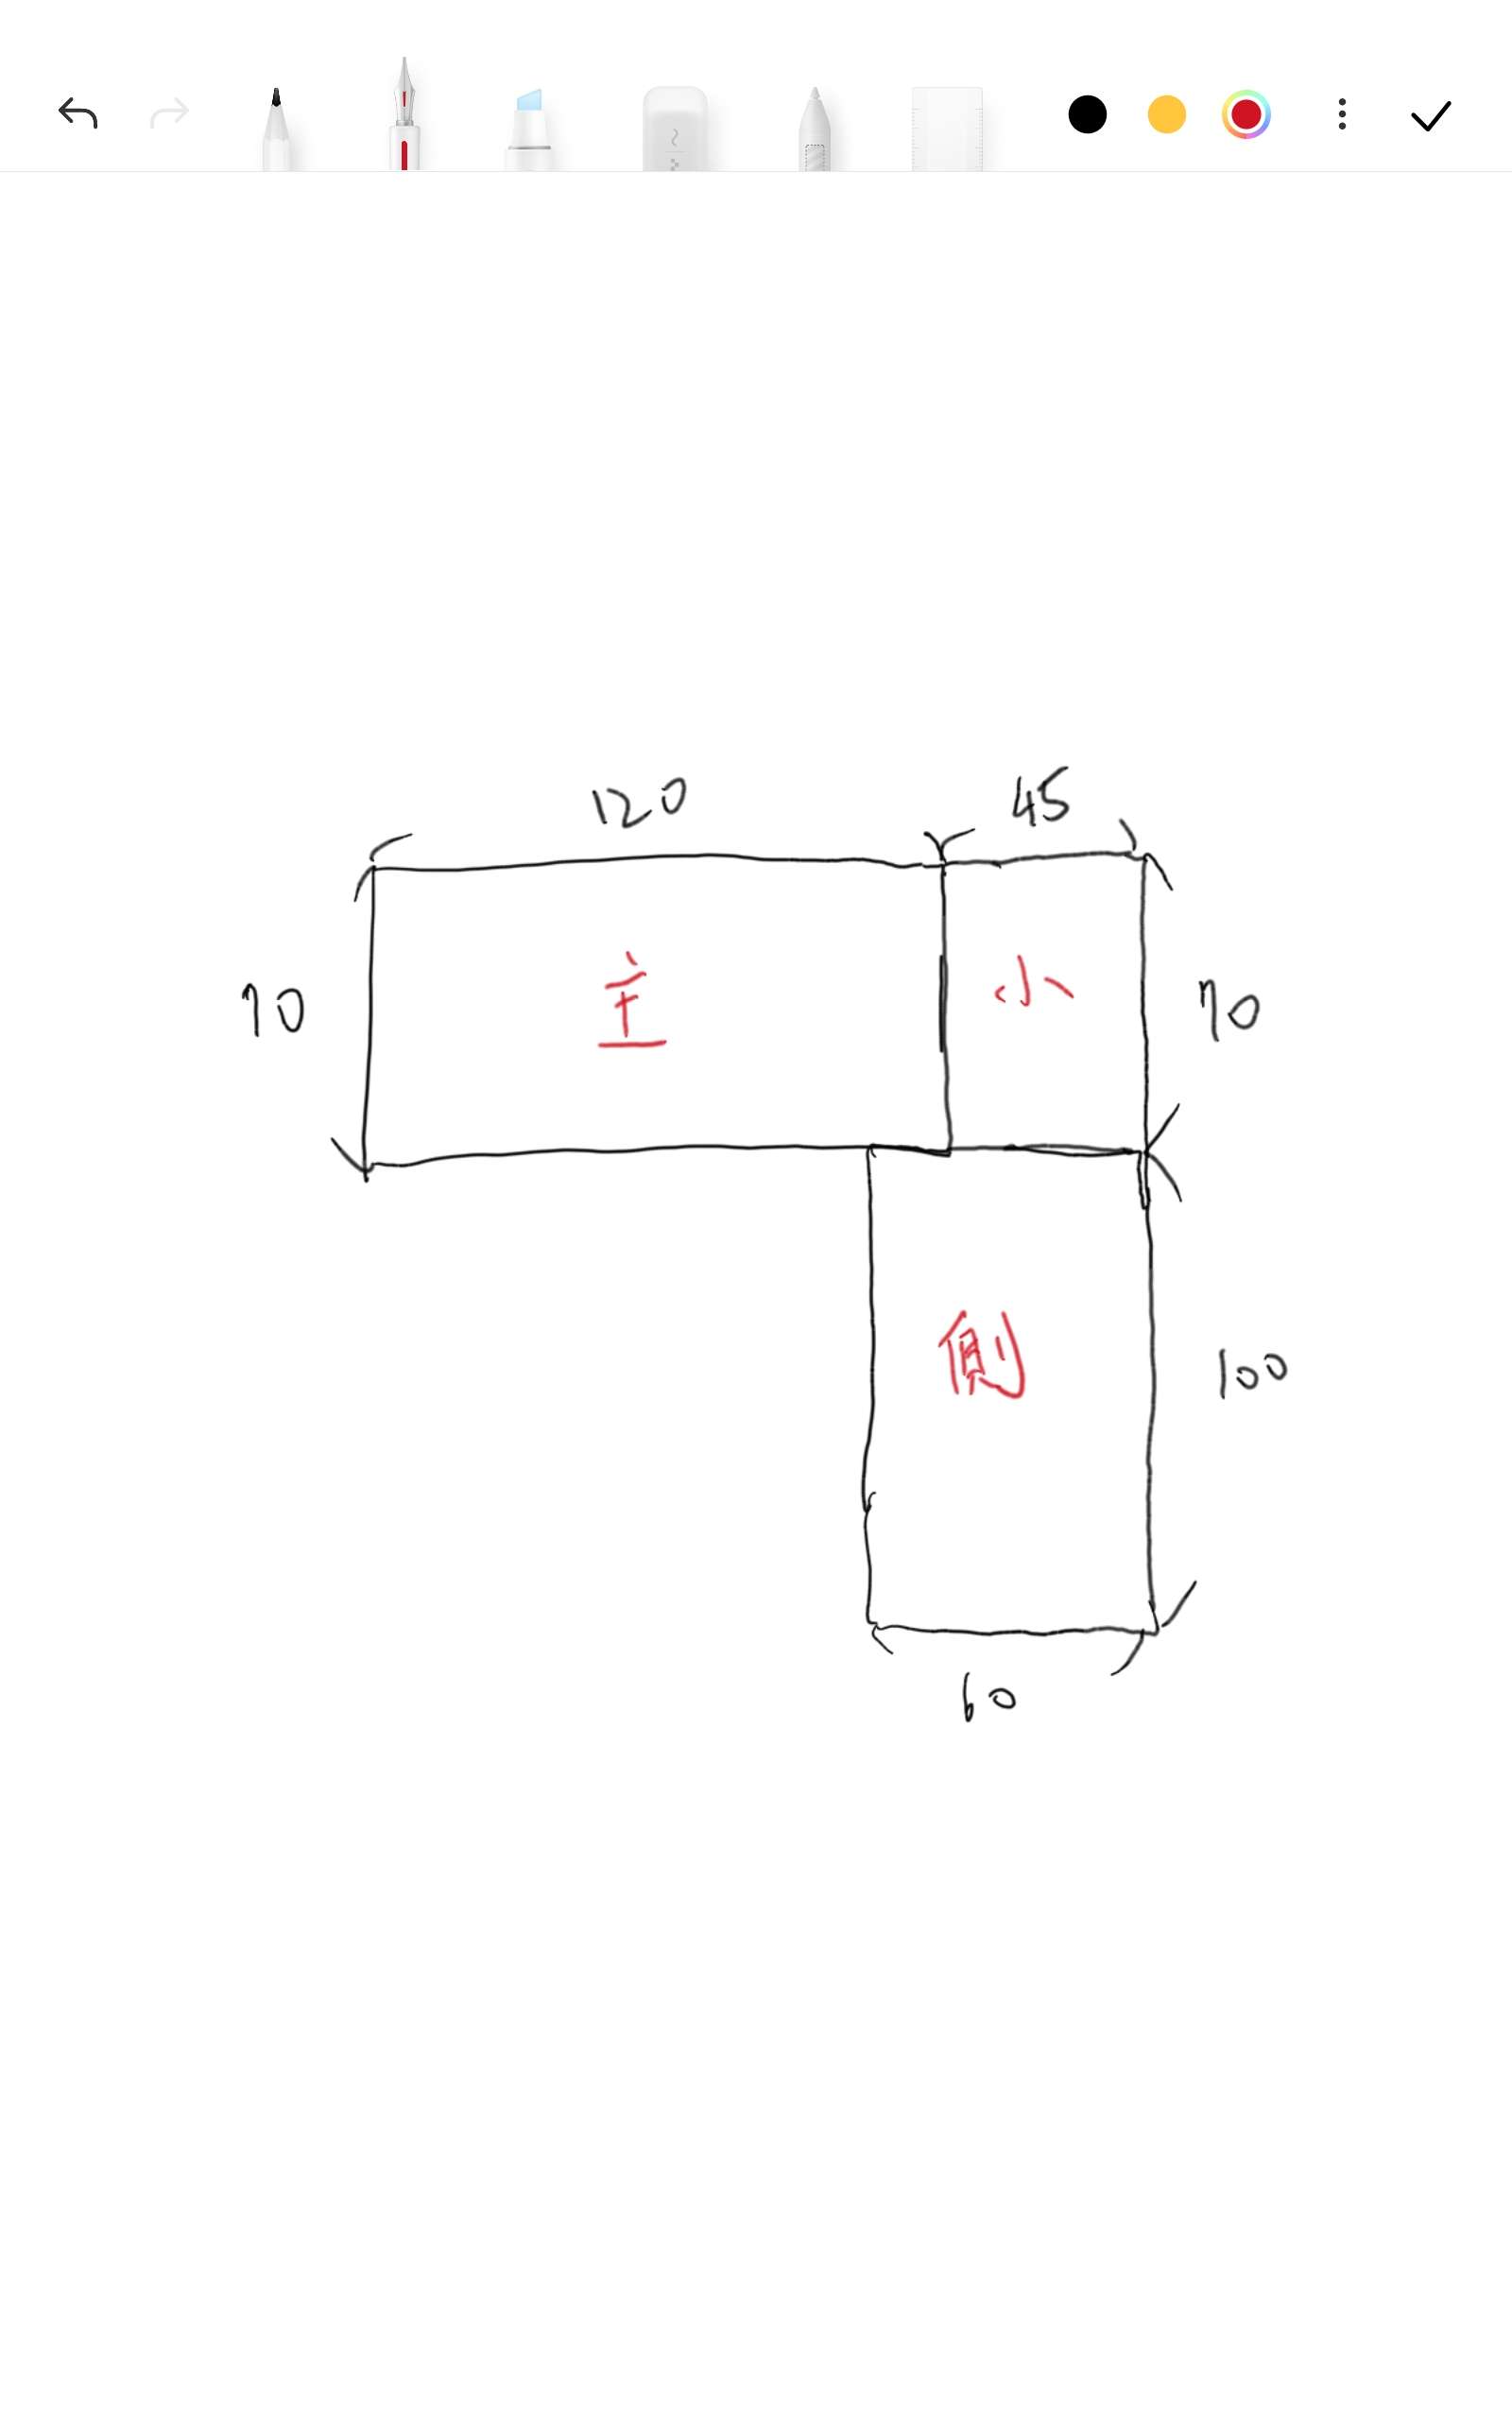 120 45
70 主 小 70
側 100
60